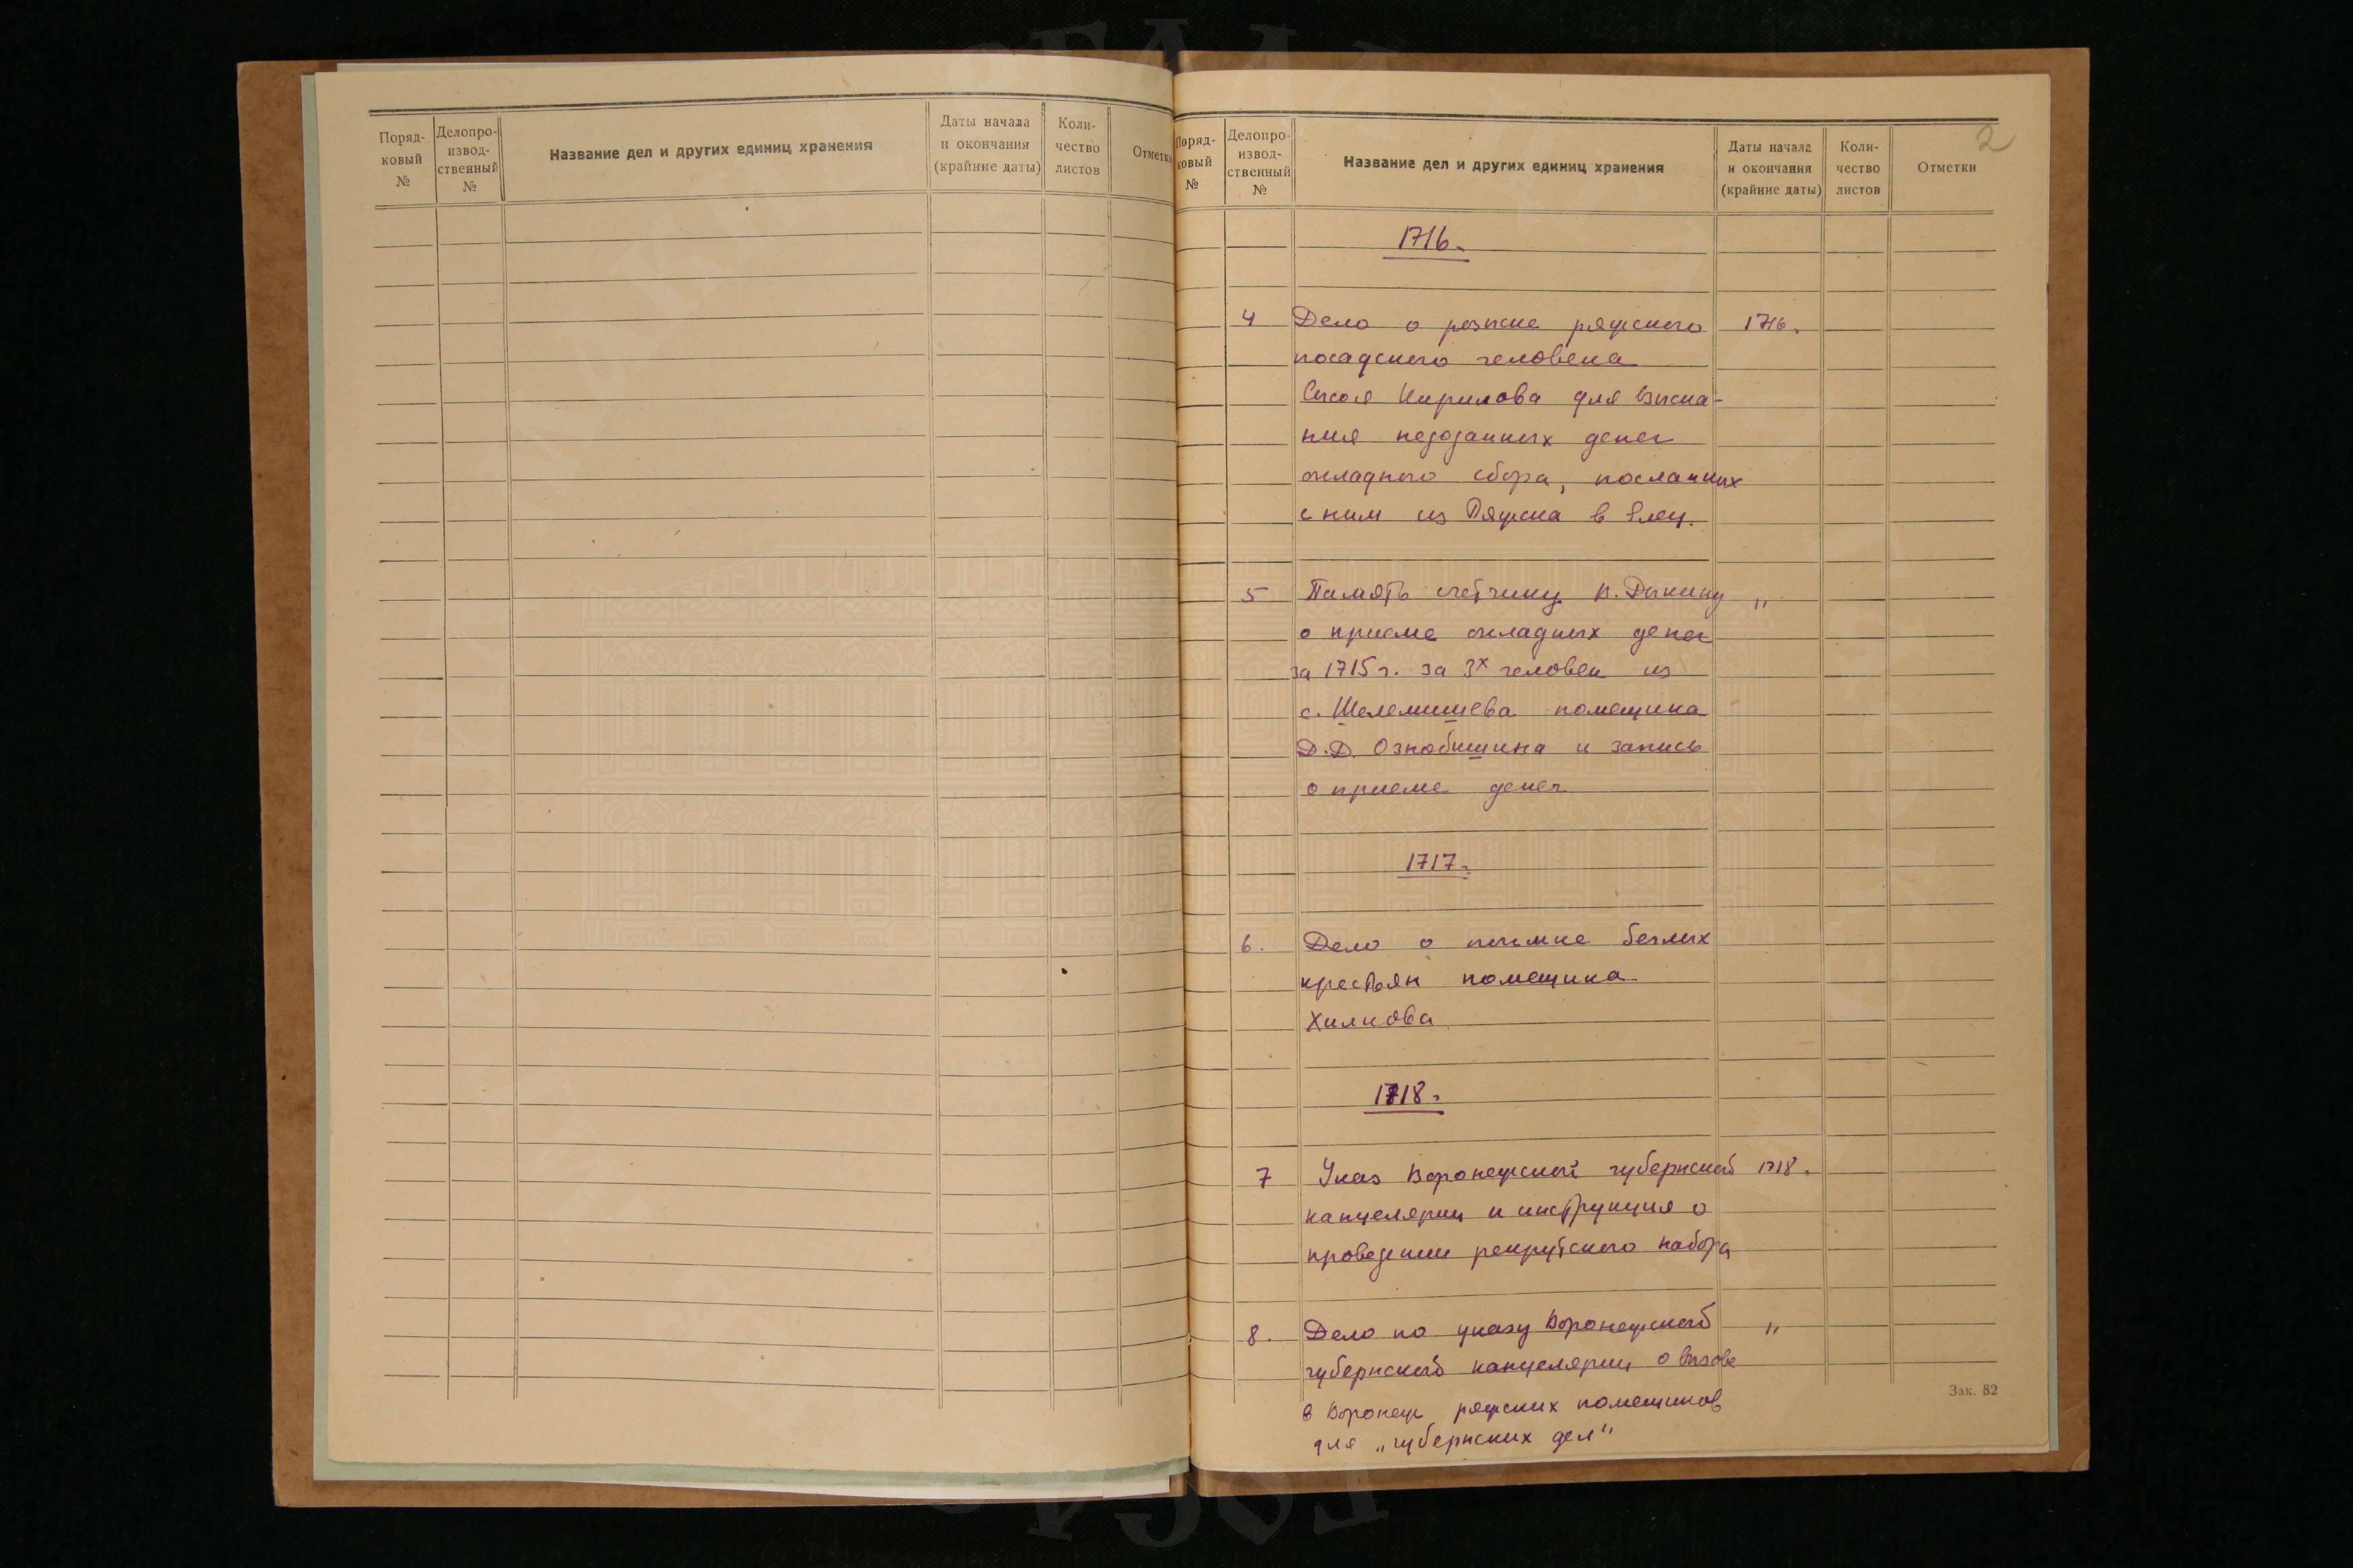 Поряд-
ковый
№
Делопро-
извод-
ственный
№
Название дел и других единиц хранения
Даты начала
и окончания
(крайние даты)
Коли-
чество
листов
Отметки
2
Поряд-
ковый
№
Делопро-
извод-
ственный
№
Название дел и других единиц хранения
Даты начала
и окончания
(крайние даты)
Коли-
чество
листов
Отметки
1716.
4 Дело о розыске ряжского 1716.
посадского человека
Кирилова для взыска-
ния недоданных денег
окладного сбора, посланных
с ним из Ряжска в Елец.
5 Память счетчику В. Дыкину "
о приеме окладных денег
за 1715 г. за 3х человек из
с. Шелемишева помещика
Д.Д. Ознобишина и запись
о приеме денег
1717.
6. Дело о поимке беглых
крестьян помещика
Хилкова
1718.
7 Указ Воронежской губернской 1718.
канцелярии и инструкция о
проведении рекрутского набора
8. Дело по указу Воронежской "
губернской канцелярии о вызове
в Воронеж ряжских помещиков
для „губернских дел"
Зак. 82